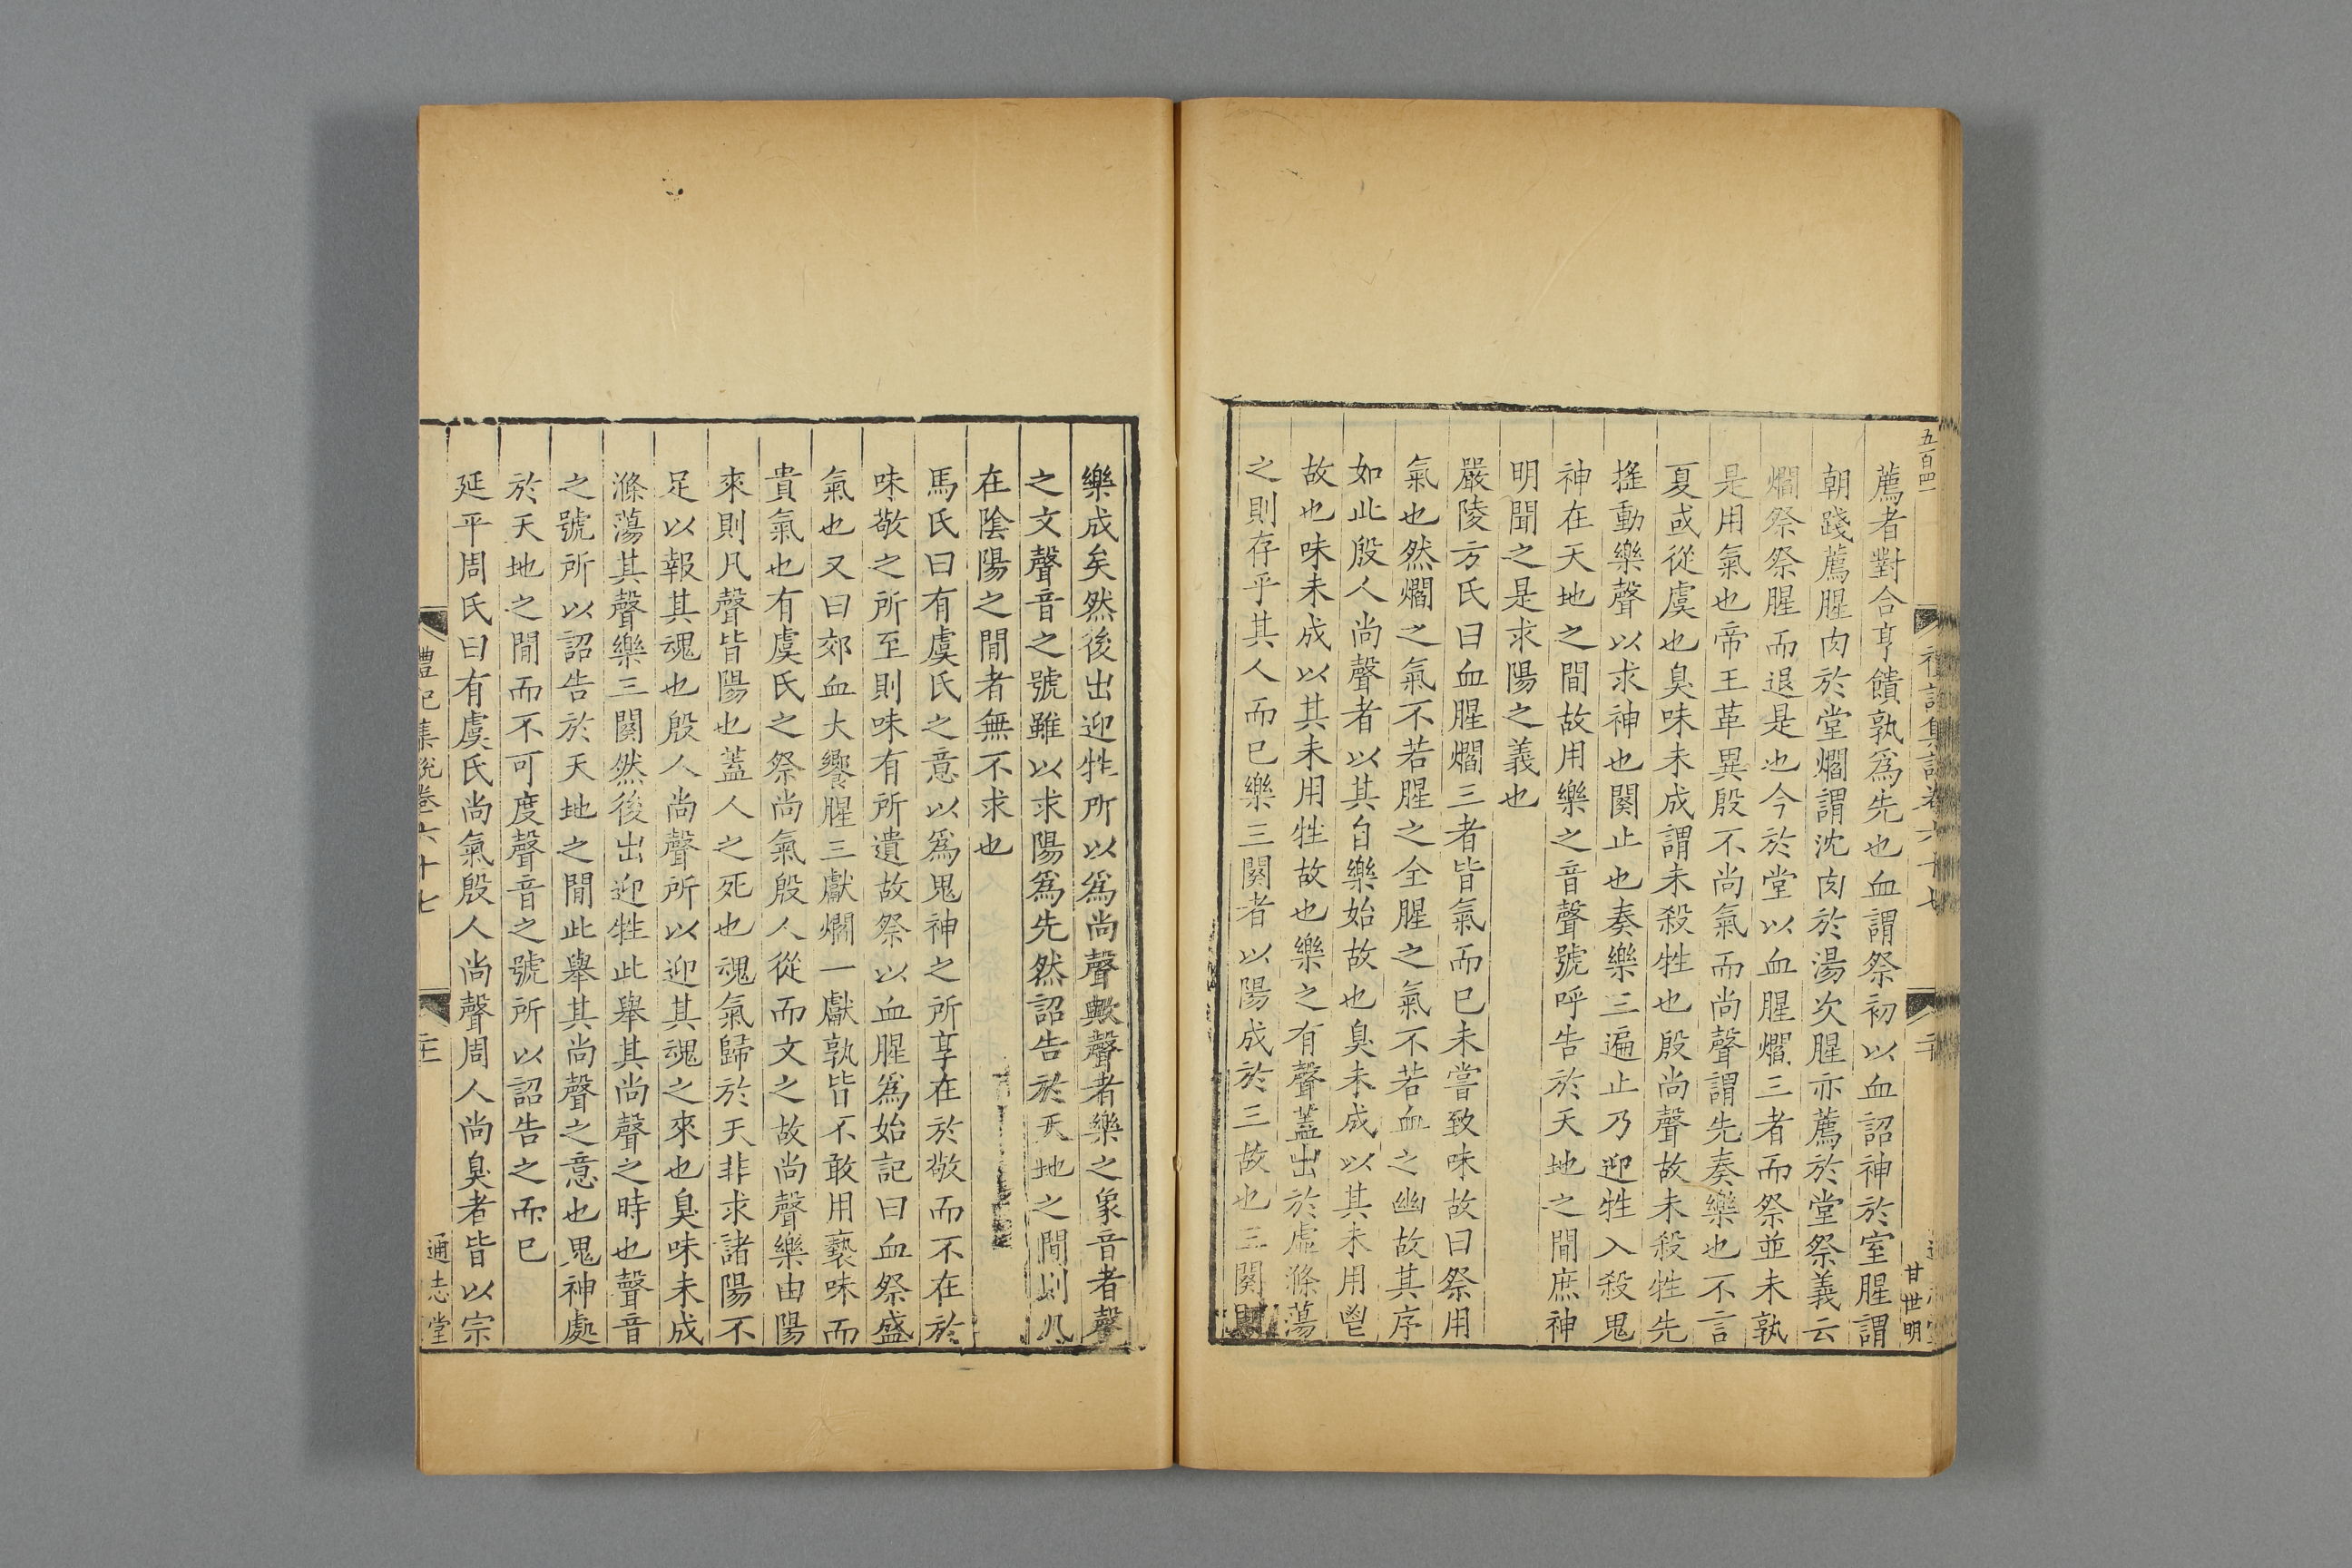 五百四一
禮記集說卷六十七
二十
甘世明
薦者對合亨饋孰爲先也血謂祭初以血詔神於室腥謂
朝踐薦腥肉於堂爓謂沈肉於湯次腥亦薦於堂祭義云
爓祭祭腥而退是也今於堂以血腥爓三者而祭並未孰
是用氣也帝王革異殷不尚氣而尚聲謂先奏樂也不言
夏或從虞也臭味未成謂未殺牲也殷尚聲故未殺牲先
搖動樂聲以求神也闋止也奏樂三遍止乃迎牲入殺鬼
神在天地之間故用樂之音聲號呼告於天地之間庶神
明聞之是求陽之義也
嚴陵方氏曰血腥爓三者皆氣而已未嘗致味故曰祭用
氣也然爓之氣不若腥之全腥之氣不若血之幽故其序
如此殷人尚聲者以其自樂始故也臭未成以其未用鬯
故也味未成以其未用牲故也樂之有聲蓋出於虛滌蕩
之則存乎其人而已樂三闋者以陽成於三故也三闋則
樂成矣然後出迎牲所以爲尚聲歟聲者樂之象音者聲
之文聲音之號雖以求陽爲先然詔告於天地之間則凡
在陰陽之間者無不求也
馬氏曰有虞氏之意以爲鬼神之所享在於敬而不在於
味敬之所至則味有所遺故祭以血腥爲始記曰血祭盛
氣也又曰郊血大饗腥三獻爓一獻孰皆不敢用褻味而
貴氣也有虞氏之祭尚氣殷人從而文之故尚聲樂由陽
來則凡聲皆陽也蓋人之死也魂氣歸於天非求諸陽不
足以報其魂也殷人尚聲所以迎其魂之來也臭味未成
滌蕩其聲樂三闋然後出迎牲此舉其尚聲之時也聲音
之號所以詔告於天地之間此舉其尚聲之意也鬼神處
於天地之間而不可度聲音之號所以詔告之而已
延平周氏曰有虞氏尚氣殷人尚聲周人尚臭者皆以宗
禮記集說卷六十七
通志堂